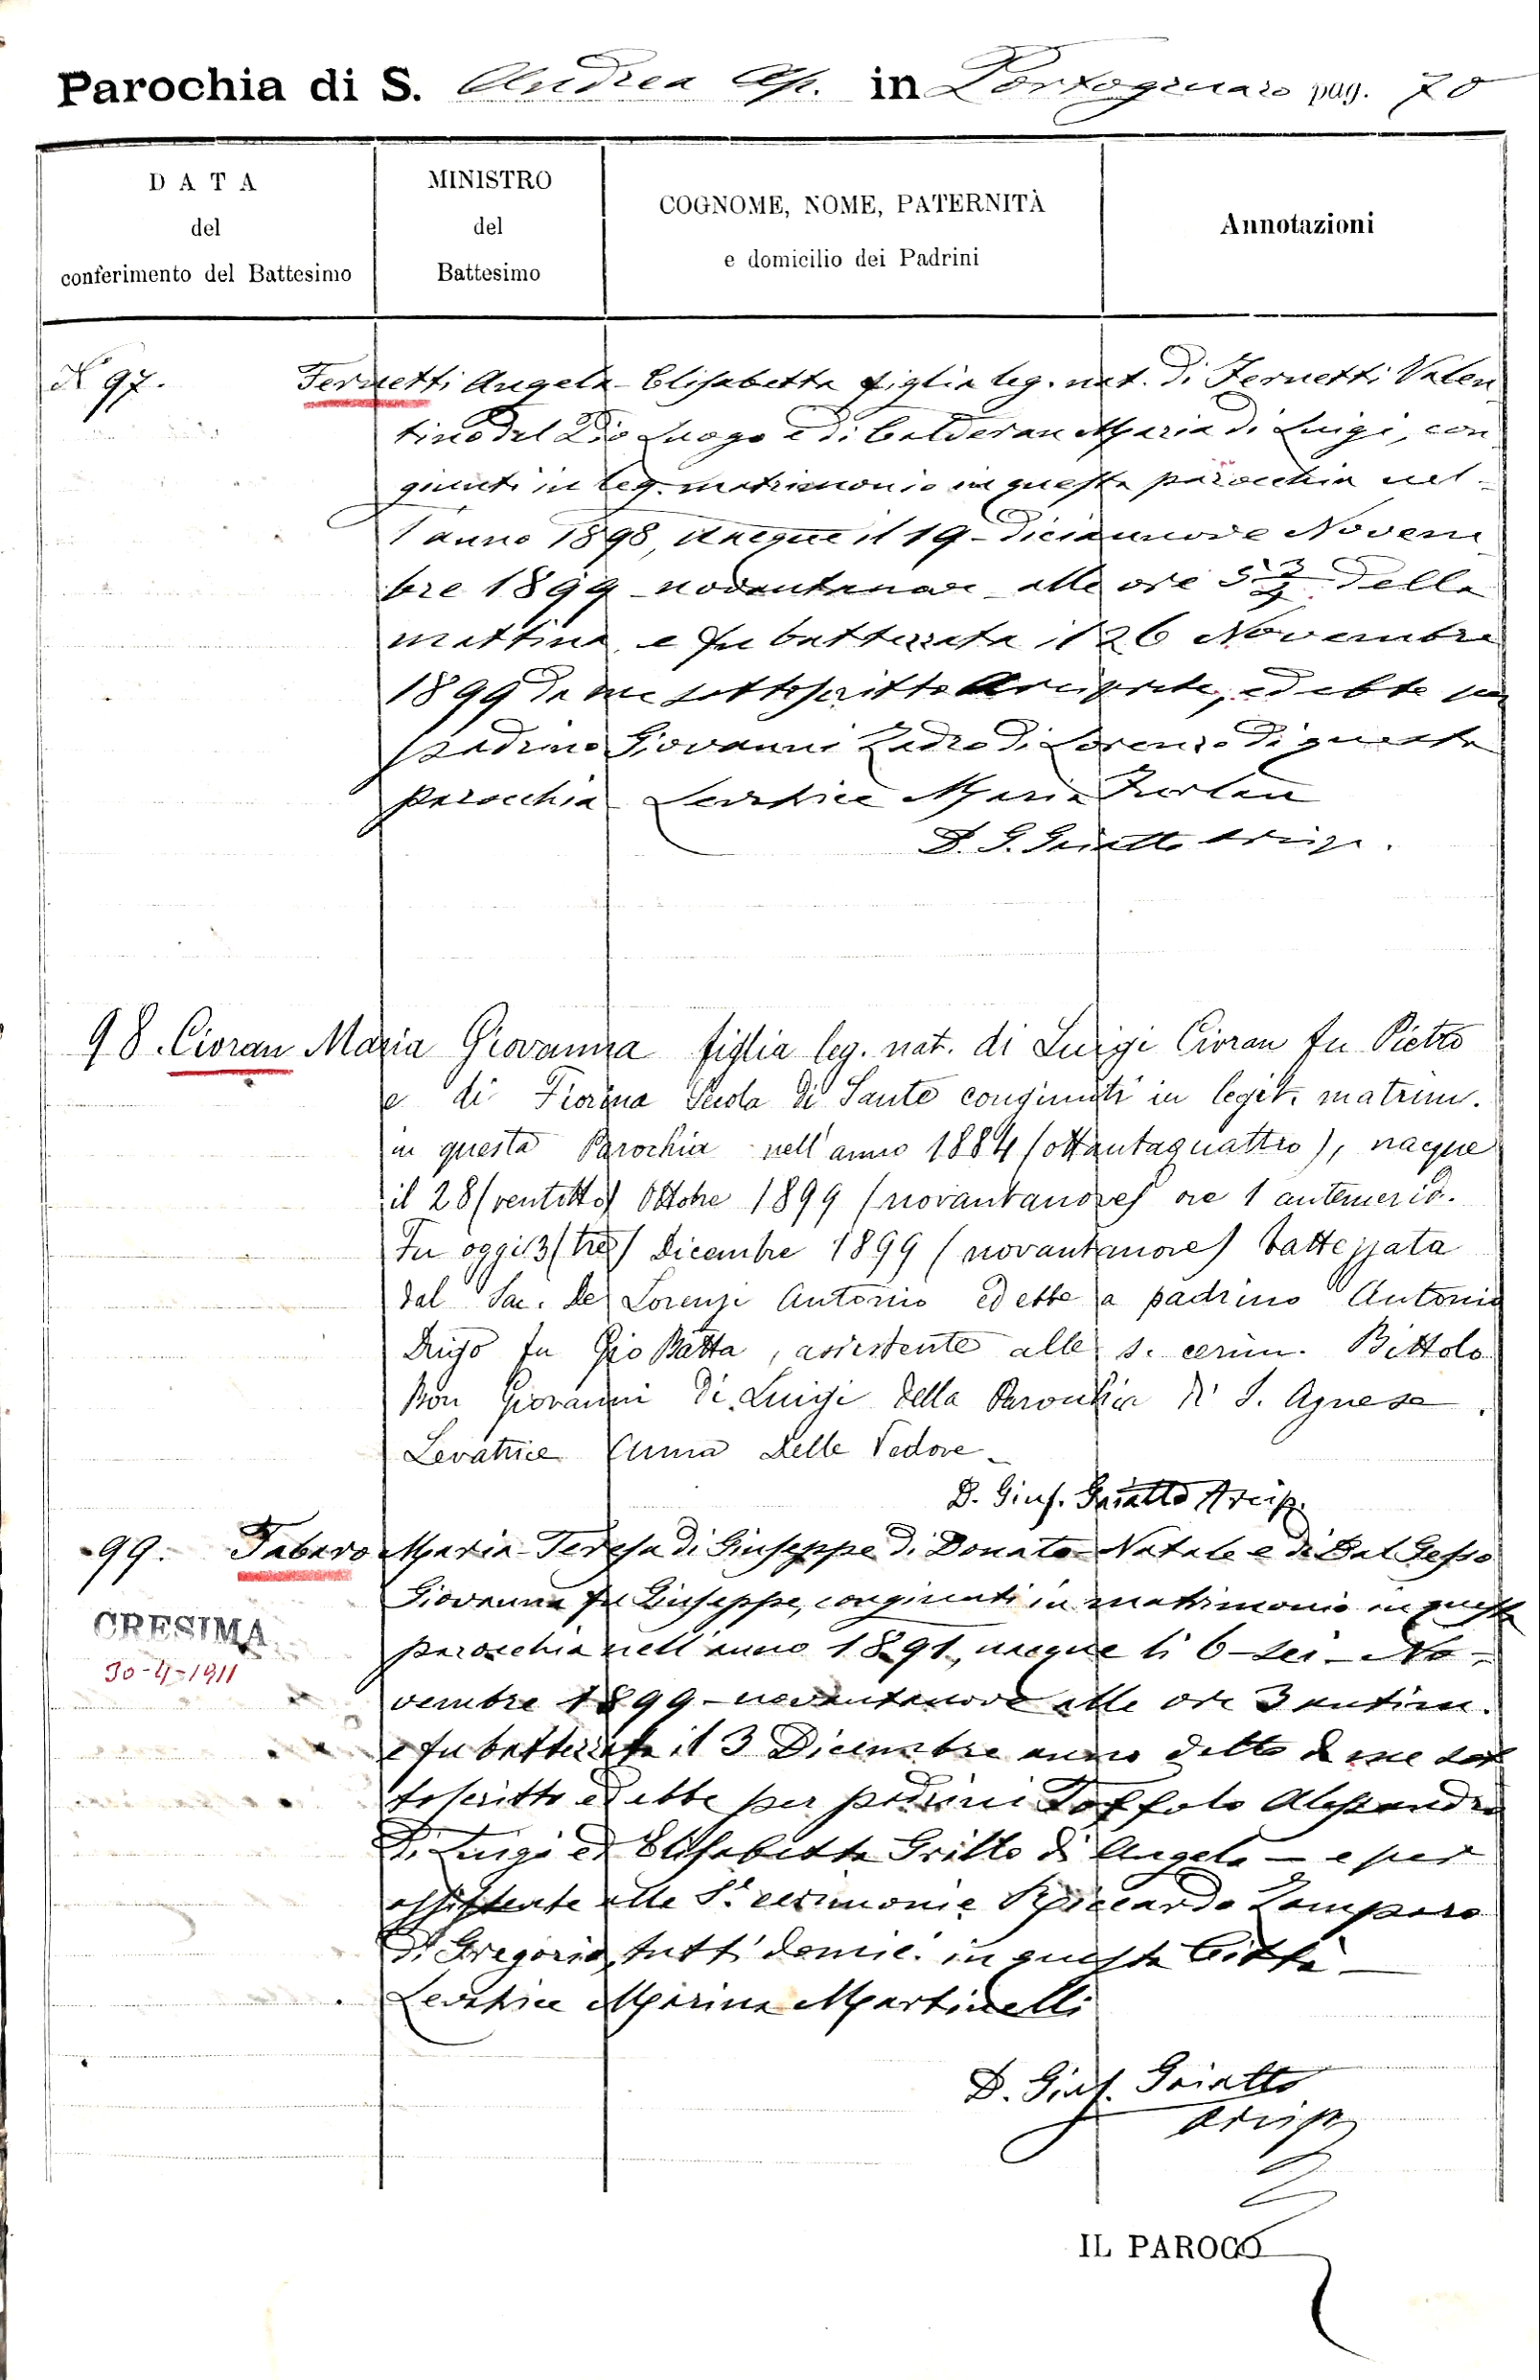 Parochia di S. Andrea Ap. in Portogruaro pag. 70
DATA
del
conferimento del Battesimo
MINISTRO
del
Battesimo
COGNOME, NOME, PATERNITÀ
e domicilio dei Padrini
Annotazioni
N 97. Fernetti Angela Elisabetta figlia leg. nat. di Fernetti Valen
tino del Pio Luogo e di Calderan Maria di Luigi, con
giunti in leg. matrimonio in questa parocchia nel-
l'anno 1898, nacque il 19 - diciannove Novem
bre 1899 novantanove alle ore 5 3/4 della
mattina, e fu battezzata il 26 Novembre
1899 da me sottoscritto Arciprete, ed ebbe per
padrino Giovanni Zadro di Lorenzo di questa
parocchia Levatrice Maria Furlan
D. G. Gaiatto Arcip.
98. Civran Maria Giovanna figlia leg. nat. di Luigi Civran fu Pietro
e di Fiorina di Sante congiunti in legit. matrim.
in questa Parochia nell'anno 1884 (ottantaquattro), nacque
il 28 (ventotto) Ottobre 1899 (novantanove) ore 1 antemerid.
Fu oggi 3 (tre) Dicembre 1899 (novantanove) battezzata
dal Sac. De Lorenzi Antonio ed ebbe a padrino Antonio
Drigo fu Gio Batta, assistente alle s. cerim. Bittolo
Bon Giovanni di Luigi della Parochia di S. Agnese.
Levatrice Anna Delle Vedove
D. Gius. Gaiatto Arcip.
99. Tabaro Maria Teresa di Giuseppe di Donato Natale e di Dal Gesso
Giovanna fu Giuseppe, congiunti in matrimonio in questa
CRESIMA
30-4-1911
parocchia nell'anno 1891, nacque li 6 - sei - No-
vembre 1899 - novantanove alle ore 3 antim.
e fu battezzata il 3 Dicembre anno detto da me sot
toscritto ed ebbe per padrini Toffolo Alessandro
di Luigi ed Elisabetta Grillo di Angelo - e per
assistente alle S. cerimonie Riccardo Zamparo
di Gregorio, tutti domic. in questa Città -
Levatrice Marina Martinelli
D. Gius. Gaiatto
Arcip
IL PAROCO